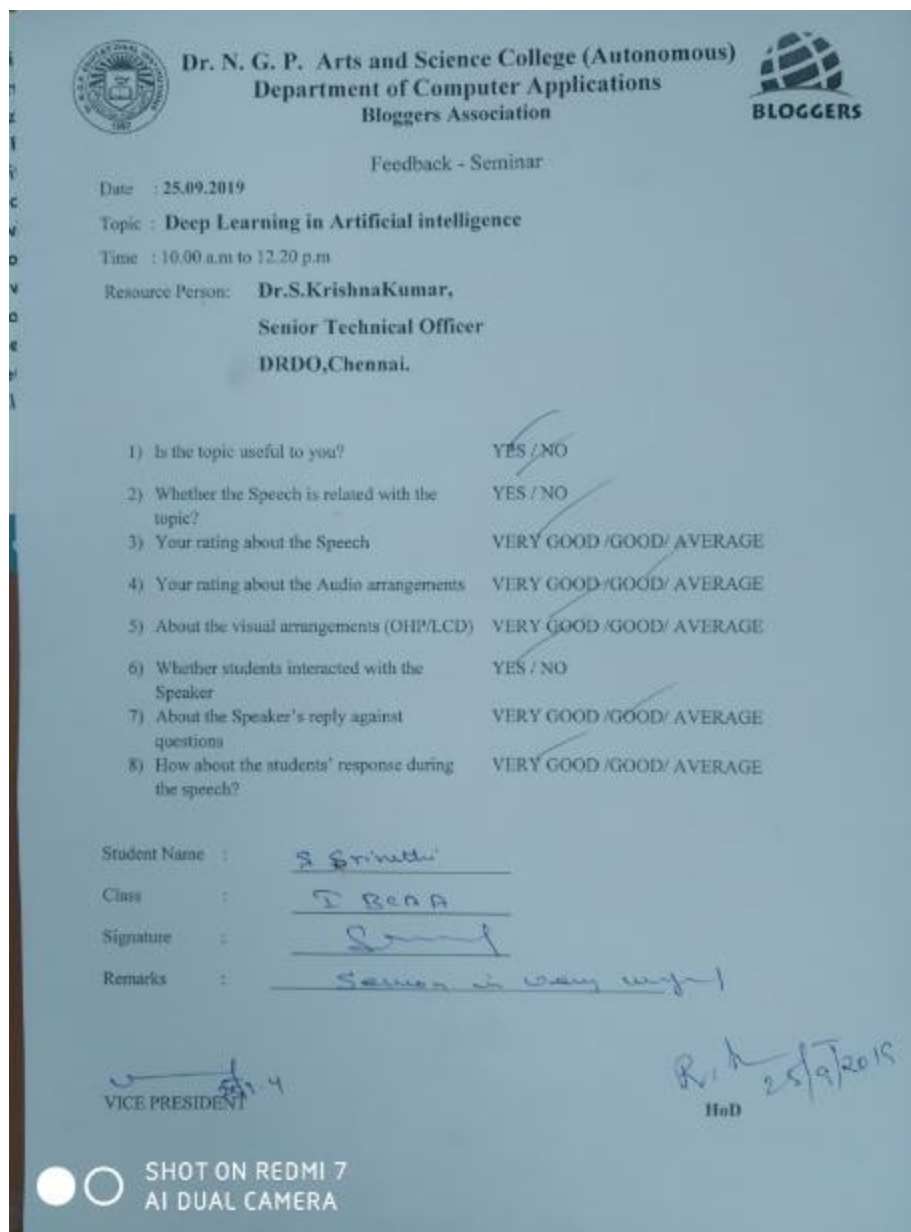 Dr. N. G. P. Arts and Science College (Autonomous)
Department of Computer Applications
Bloggers Association
BLOGGERS
Feedback - Seminar
Date : 25.09.2019
Topic : Deep Learning in Artificial intelligence
Time : 10.00 a.m to 12.20 p.m
Resource Person: Dr.S.KrishnaKumar,
Senior Technical Officer
DRDO,Chennai.
1) Is the topic useful to you? YES / NO
2) Whether the Speech is related with the YES / NO
topic?
3) Your rating about the Speech VERY GOOD /GOOD/ AVERAGE
4) Your rating about the Audio arrangements VERY GOOD /GOOD/ AVERAGE
5) About the visual arrangements (OHP/LCD) VERY GOOD /GOOD/ AVERAGE
6) Whether students interacted with the YES / NO
Speaker
7) About the Speaker's reply against VERY GOOD /GOOD/ AVERAGE
questions
8) How about the students' response during VERY GOOD /GOOD/ AVERAGE
the speech?
Student Name :
Class : I BCA A
Signature :
Remarks :
25/9/2019
VICE PRESIDENT
HoD
SHOT ON REDMI 7
AI DUAL CAMERA